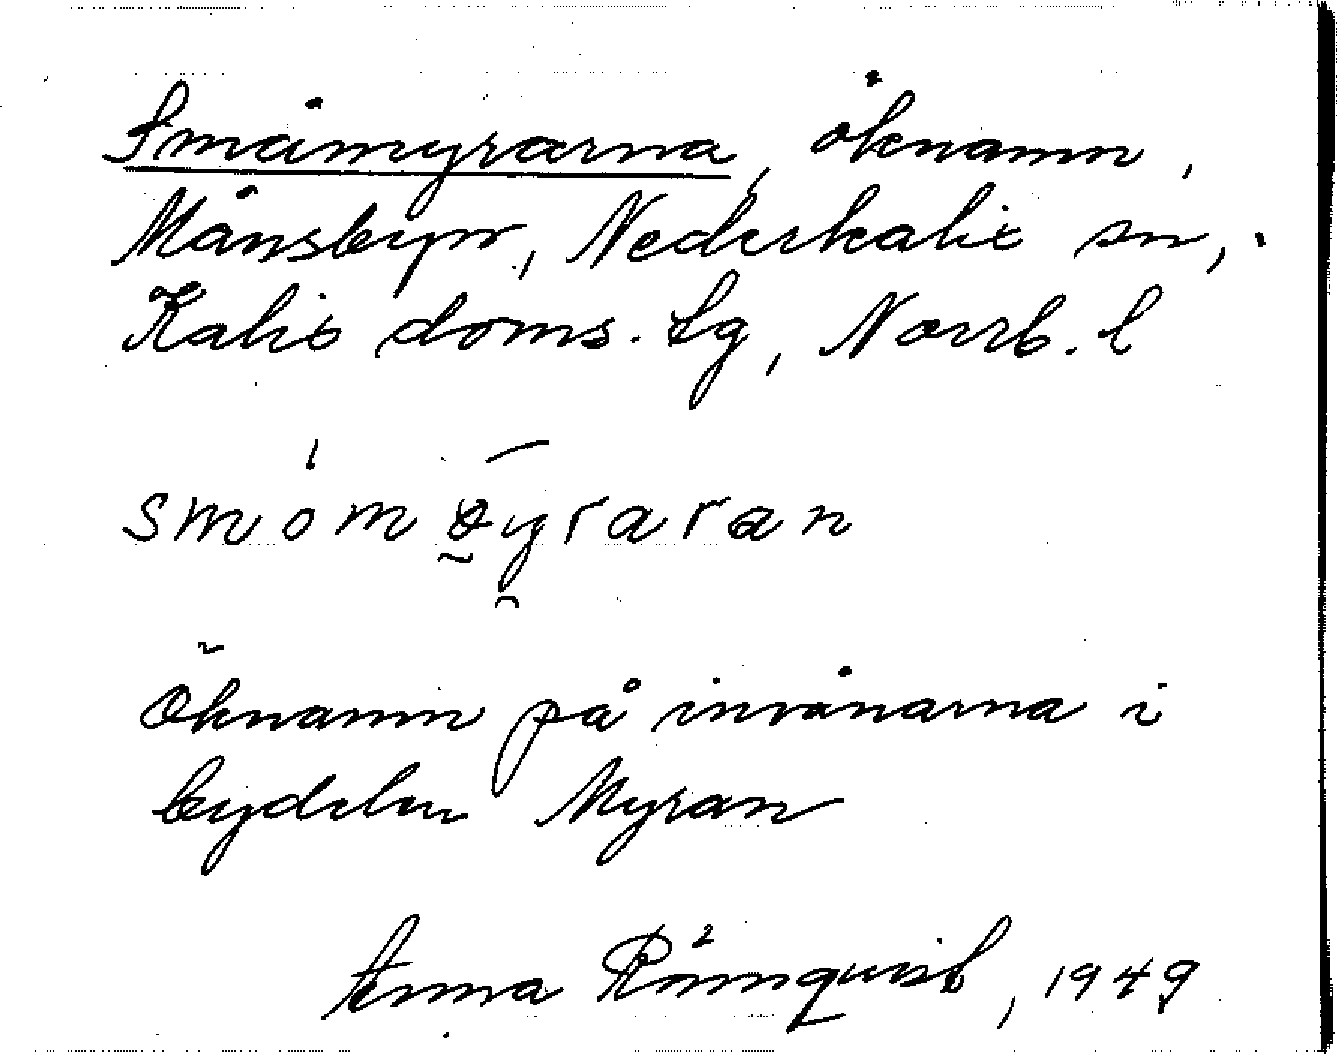 Småmyrarna, öknamn,
Månsbyn, Nederkalix sn,
Kalix doms. lg, Norrb. l
smómøyraran
Öknamn på invånarna i
bydelen Myran
Anna Rönnqvist, 1949